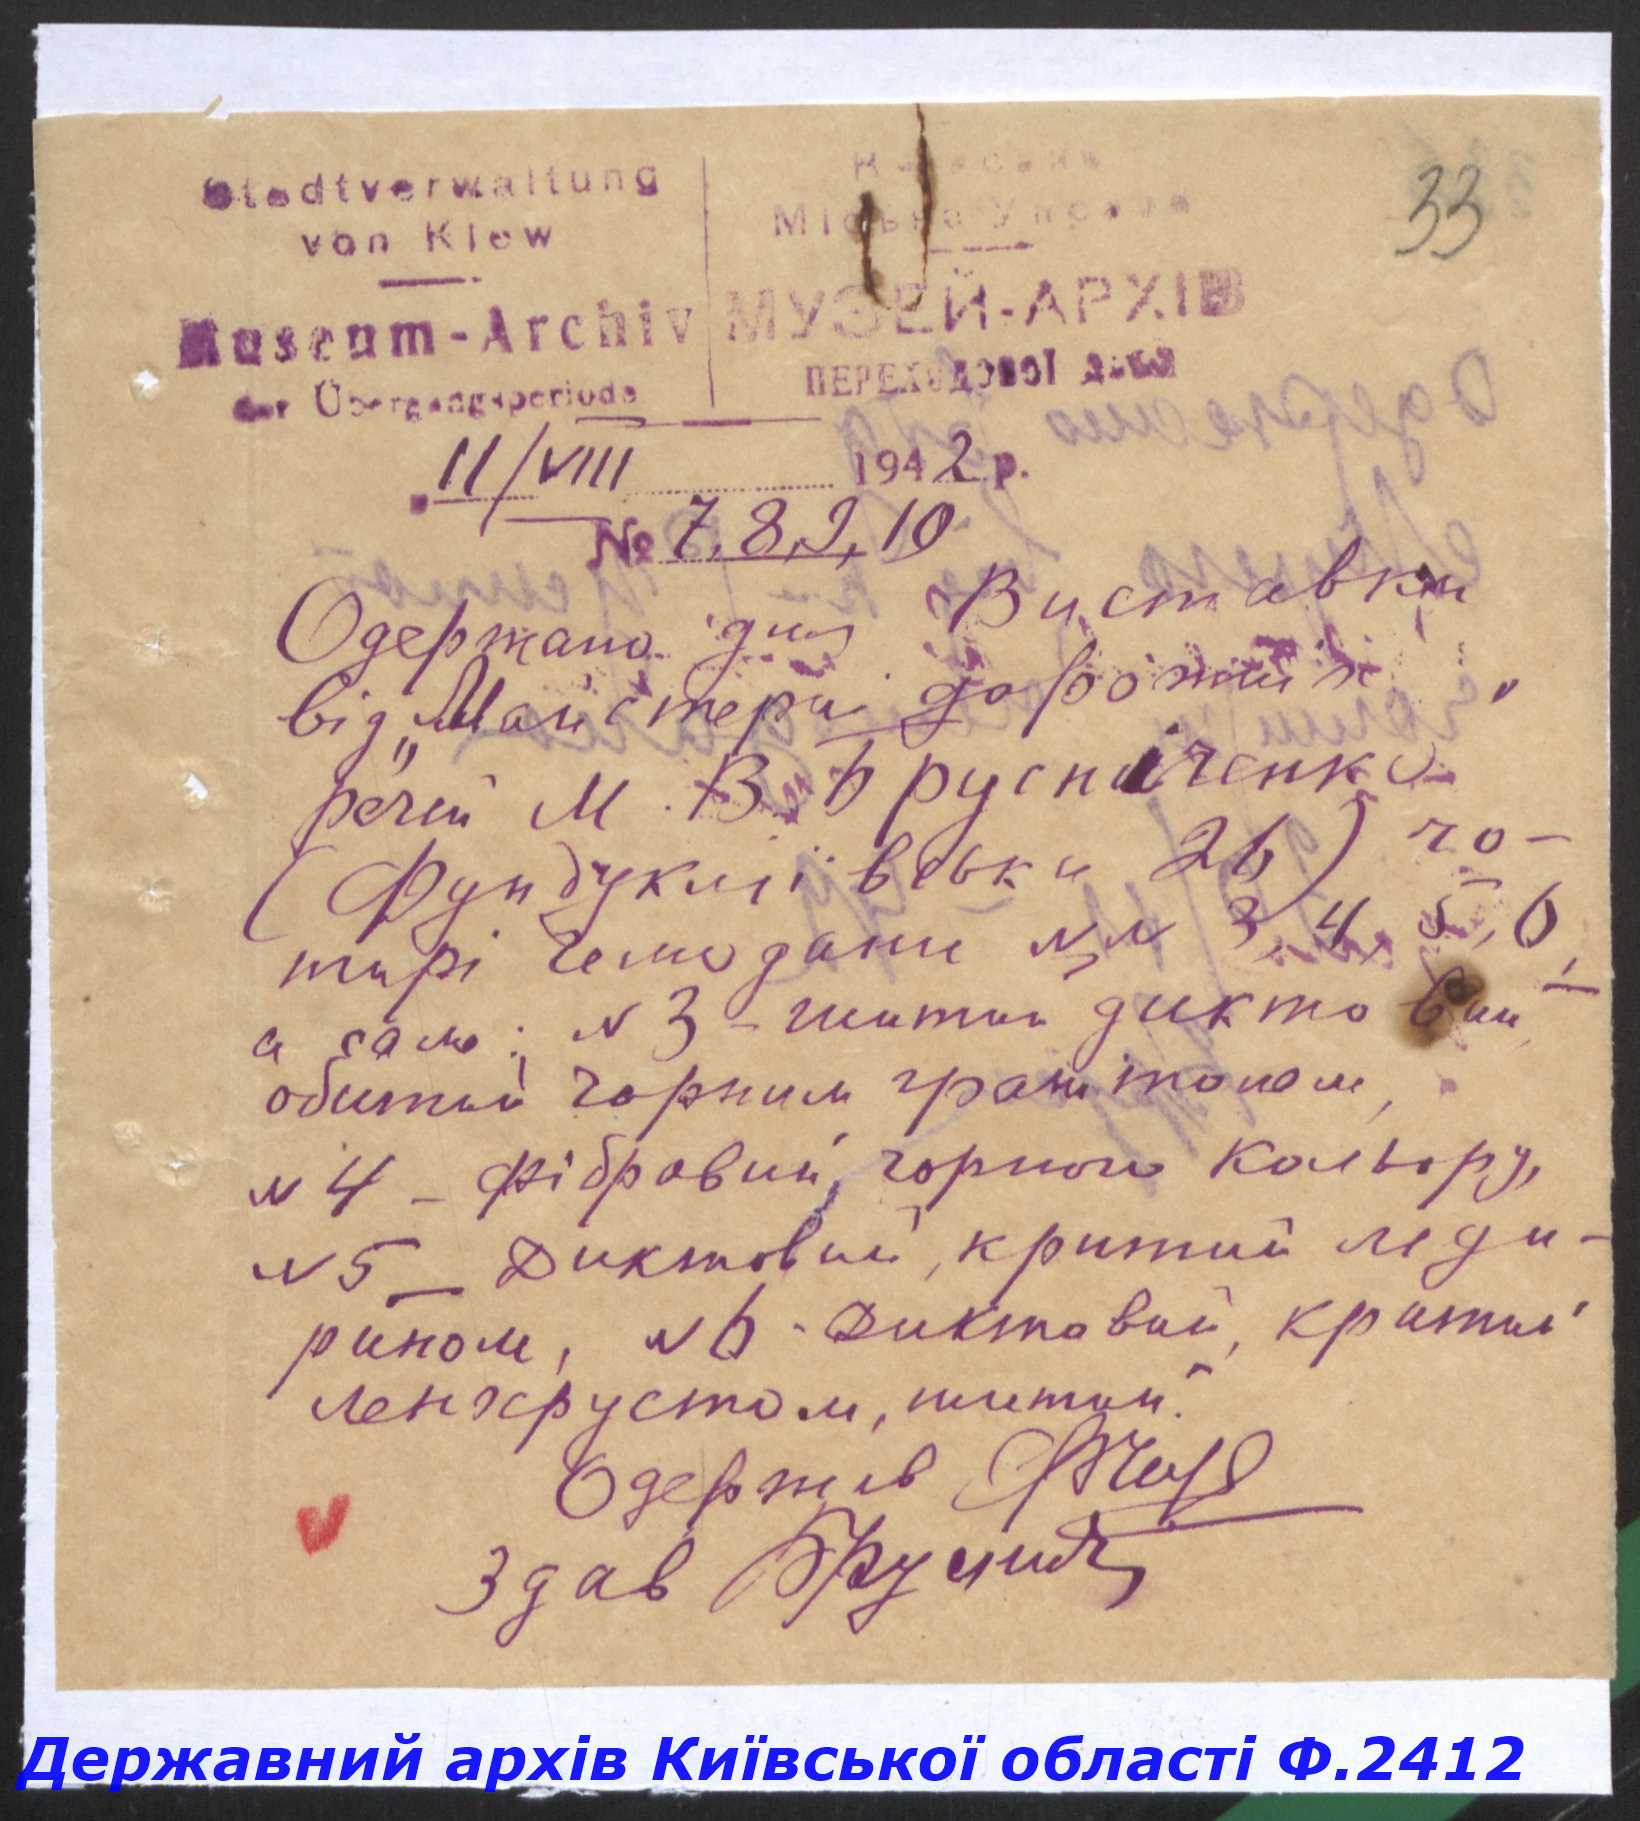 33
Stadtverwaltung
von Kiew
Museum-Archiv
der Übergangsperiode
Київська
Міська Управа
МУЗЕЙ-АРХІВ
ПЕРЕХОДОВОЇ ДОБИ
11/VIII 1942 р.
№ 7, 8, 9, 10
Одержано для Виставки
від „Майстерні дорожніх
речей" М. В. Брусніченко
(Фундукліївська 26) чо-
тирі чемодани №№ 3, 4, 5, 6,
а саме: № 3 - шитий диктовий,
обитий чорним гранітолем,
№ 4 - фібровий, чорного кольору,
№ 5 - диктовий, критий леди-
рином, № 6 - диктовий, критий
ленкрустом, шитий.
Одержав
Здав Брусніч
Державний архів Київської області Ф.2412